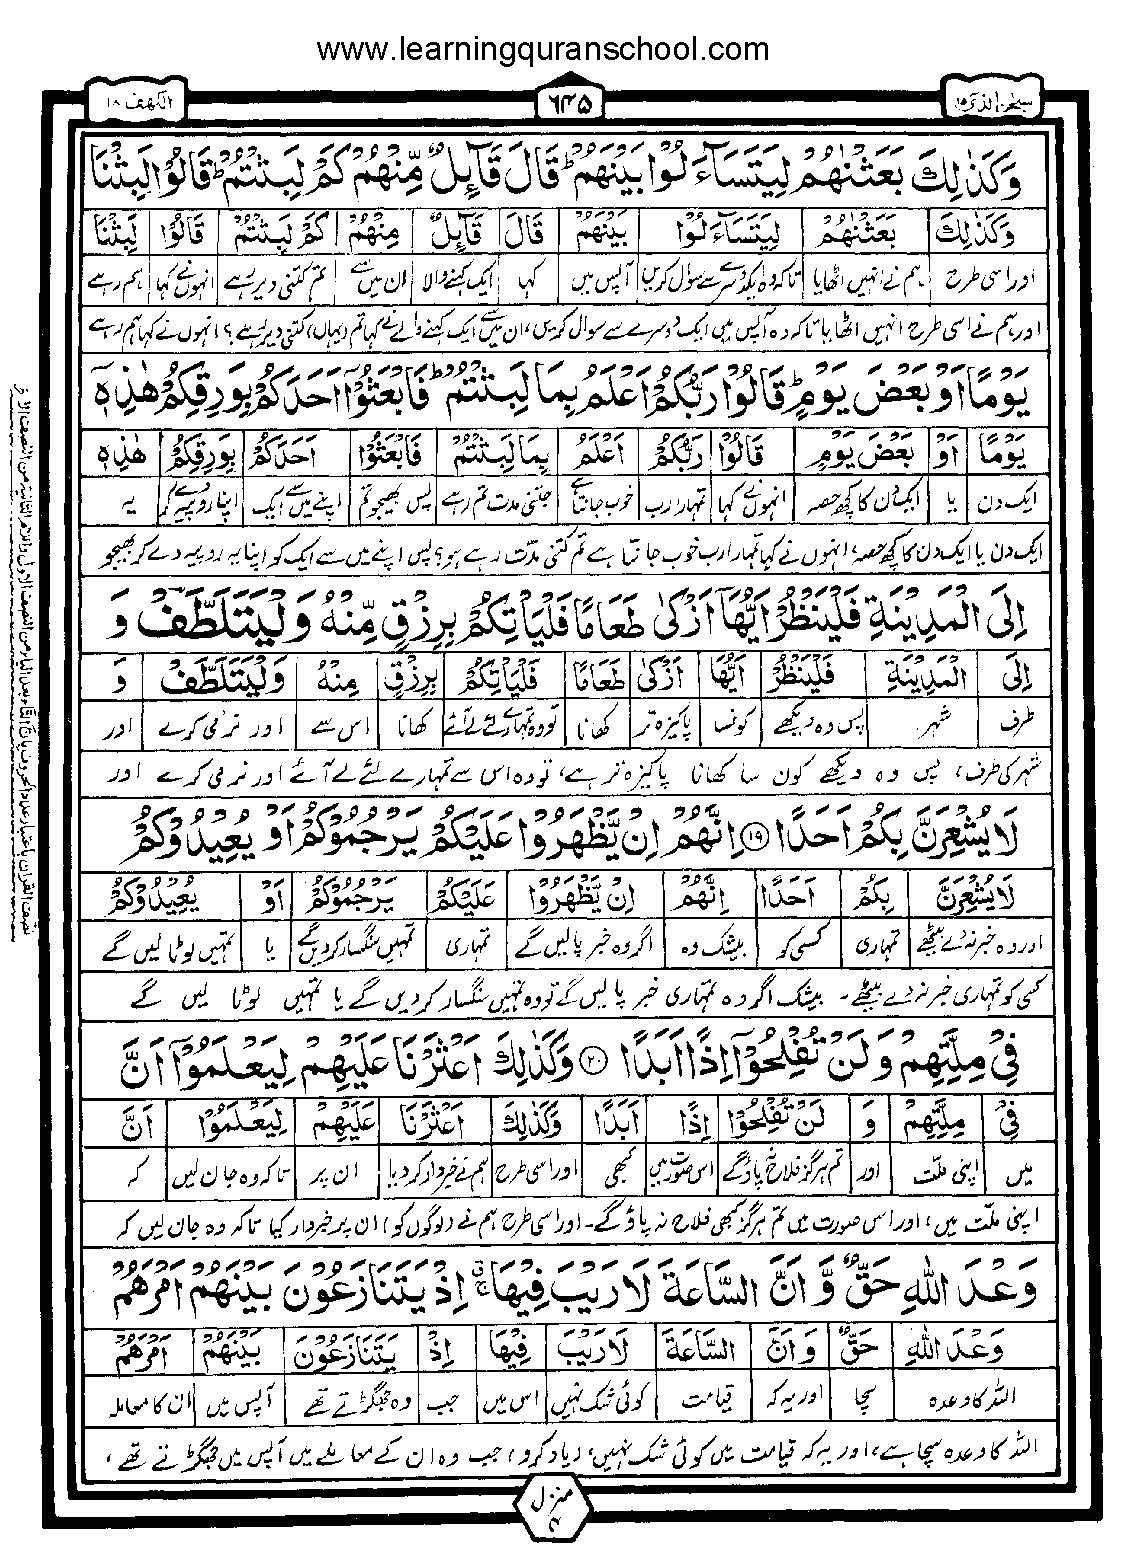 www.learningquranschool.com
سبحن الذی ١٥
٦٤٥
الکهف ١٨
وَكَذٰلِكَ بَعَثْنٰهُمْ لِيَتَسَآءَلُوْا بَيْنَهُمْ ؕ قَالَ قَآئِلٌ مِّنْهُمْ كَمْ لَبِثْتُمْ ؕ قَالُوْا لَبِثْنَا
وَكَذٰلِكَ بَعَثْنٰهُمْ لِيَتَسَآءَلُوْا بَيْنَهُمْ قَالَ قَآئِلٌ مِنْهُمْ كَمْ لَبِثْتُمْ قَالُوْا لَبِثْنَا
اور اسی طرح ہم نے انہیں اٹھایا تاکہ وہ ایکدوسرے سے سوال کریں آپس میں کہا ایک کہنے والا ان میں سے تم کتنی دیر رہے انہوں نے کہا ہم رہے
اور ہم نے اسی طرح انہیں اٹھایا تاکہ وہ آپس میں ایک دوسرے سے سوال کریں، ان میں سے ایک کہنے والے نے کہا تم (یہاں) کتنی دیر رہے؟ انہوں نے کہا ہم رہے
يَوْمًا اَوْ بَعْضَ يَوْمٍ ؕ قَالُوْا رَبُّكُمْ اَعْلَمُ بِمَا لَبِثْتُمْ ؕ فَابْعَثُوْٓا اَحَدَكُمْ بِوَرِقِكُمْ هٰذِهٖٓ
يَوْمًا اَوْ بَعْضَ يَوْمٍ قَالُوْا رَبُّكُمْ اَعْلَمُ بِمَا لَبِثْتُمْ فَابْعَثُوْٓا اَحَدَكُمْ بِوَرِقِكُمْ هٰذِهٖ
ایک دن یا ایک دن کا کچھ حصہ انہوں نے کہا تمہارا رب خوب جانتا ہے جتنی مدت تم رہے پس بھیجو تم اپنے میں سے ایک اپنا روپیہ دے کر یہ
ایک دن یا ایک دن کا کچھ حصہ، انہوں نے کہا تمہارا رب خوب جانتا ہے تم کتنی مدت رہے ہو؟ پس اپنے میں سے ایک کو اپنا یہ روپیہ دے کر بھیجو
اِلَى الْمَدِيْنَةِ فَلْيَنْظُرْ اَيُّهَآ اَزْكٰى طَعَامًا فَلْيَاْتِكُمْ بِرِزْقٍ مِّنْهُ وَلْيَتَلَطَّفْ وَ
اِلَى الْمَدِيْنَةِ فَلْيَنْظُرْ اَيُّهَآ اَزْكٰى طَعَامًا فَلْيَاْتِكُمْ بِرِزْقٍ مِنْهُ وَلْيَتَلَطَّفْ وَ
طرف شہر پس وہ دیکھے کونسا پاکیزہ تر کھانا تو وہ تمہارے لئے لے آئے کھانا اس سے اور نرمی کرے اور
شہر کی طرف، پس وہ دیکھے کون سا کھانا پاکیزہ تر ہے، تو وہ اس سے تمہارے لئے لے آئے اور نرمی کرے اور
لَا يُشْعِرَنَّ بِكُمْ اَحَدًا ۱۹ اِنَّهُمْ اِنْ يَّظْهَرُوْا عَلَيْكُمْ يَرْجُمُوْكُمْ اَوْ يُعِيْدُوْكُمْ
لَا يُشْعِرَنَّ بِكُمْ اَحَدًا اِنَّهُمْ اِنْ يَّظْهَرُوْا عَلَيْكُمْ يَرْجُمُوْكُمْ اَوْ يُعِيْدُوْكُمْ
اور وہ خبر نہ دے بیٹھے تمہاری کسی کو بیشک وہ اگر وہ خبر پالیں گے تمہاری تمہیں سنگسار کردیں گے یا تمہیں لوٹا لیں گے
کسی کو تمہاری خبر نہ دے بیٹھے۔ بیشک اگر وہ تمہاری خبر پالیں گے تو وہ تمہیں سنگسار کردیں گے یا تمہیں لوٹا لیں گے
فِيْ مِلَّتِهِمْ وَلَنْ تُفْلِحُوْٓا اِذًا اَبَدًا ۲۰ وَكَذٰلِكَ اَعْثَرْنَا عَلَيْهِمْ لِيَعْلَمُوْٓا اَنَّ
فِيْ مِلَّتِهِمْ وَ لَنْ تُفْلِحُوْٓا اِذًا اَبَدًا وَكَذٰلِكَ اَعْثَرْنَا عَلَيْهِمْ لِيَعْلَمُوْٓا اَنَّ
میں اپنی ملت اور تم ہرگز فلاح نہ پاؤ گے اس صورت میں کبھی اور اسی طرح ہم نے خبردار کردیا ان پر تاکہ وہ جان لیں کہ
اپنی ملت میں، اور اس صورت میں تم ہرگز کبھی فلاح نہ پاؤ گے۔ اور اسی طرح ہم نے (لوگوں کو) ان پر خبردار کیا تاکہ وہ جان لیں کہ
وَعْدَ اللّٰهِ حَقٌّ وَّاَنَّ السَّاعَةَ لَا رَيْبَ فِيْهَا ۚ اِذْ يَتَنَازَعُوْنَ بَيْنَهُمْ اَمْرَهُمْ
وَعْدَ اللّٰهِ حَقٌّ وَاَنَّ السَّاعَةَ لَا رَيْبَ فِيْهَا اِذْ يَتَنَازَعُوْنَ بَيْنَهُمْ اَمْرَهُمْ
اللہ کا وعدہ سچا اور یہ کہ قیامت کوئی شک نہیں اس میں جب وہ جھگڑتے تھے آپس میں ان کا معاملہ
اللہ کا وعدہ سچا ہے، اور یہ کہ قیامت میں کوئی شک نہیں، (یاد کرو) جب وہ ان کے معاملے میں آپس میں جھگڑتے تھے،
منزل ۴